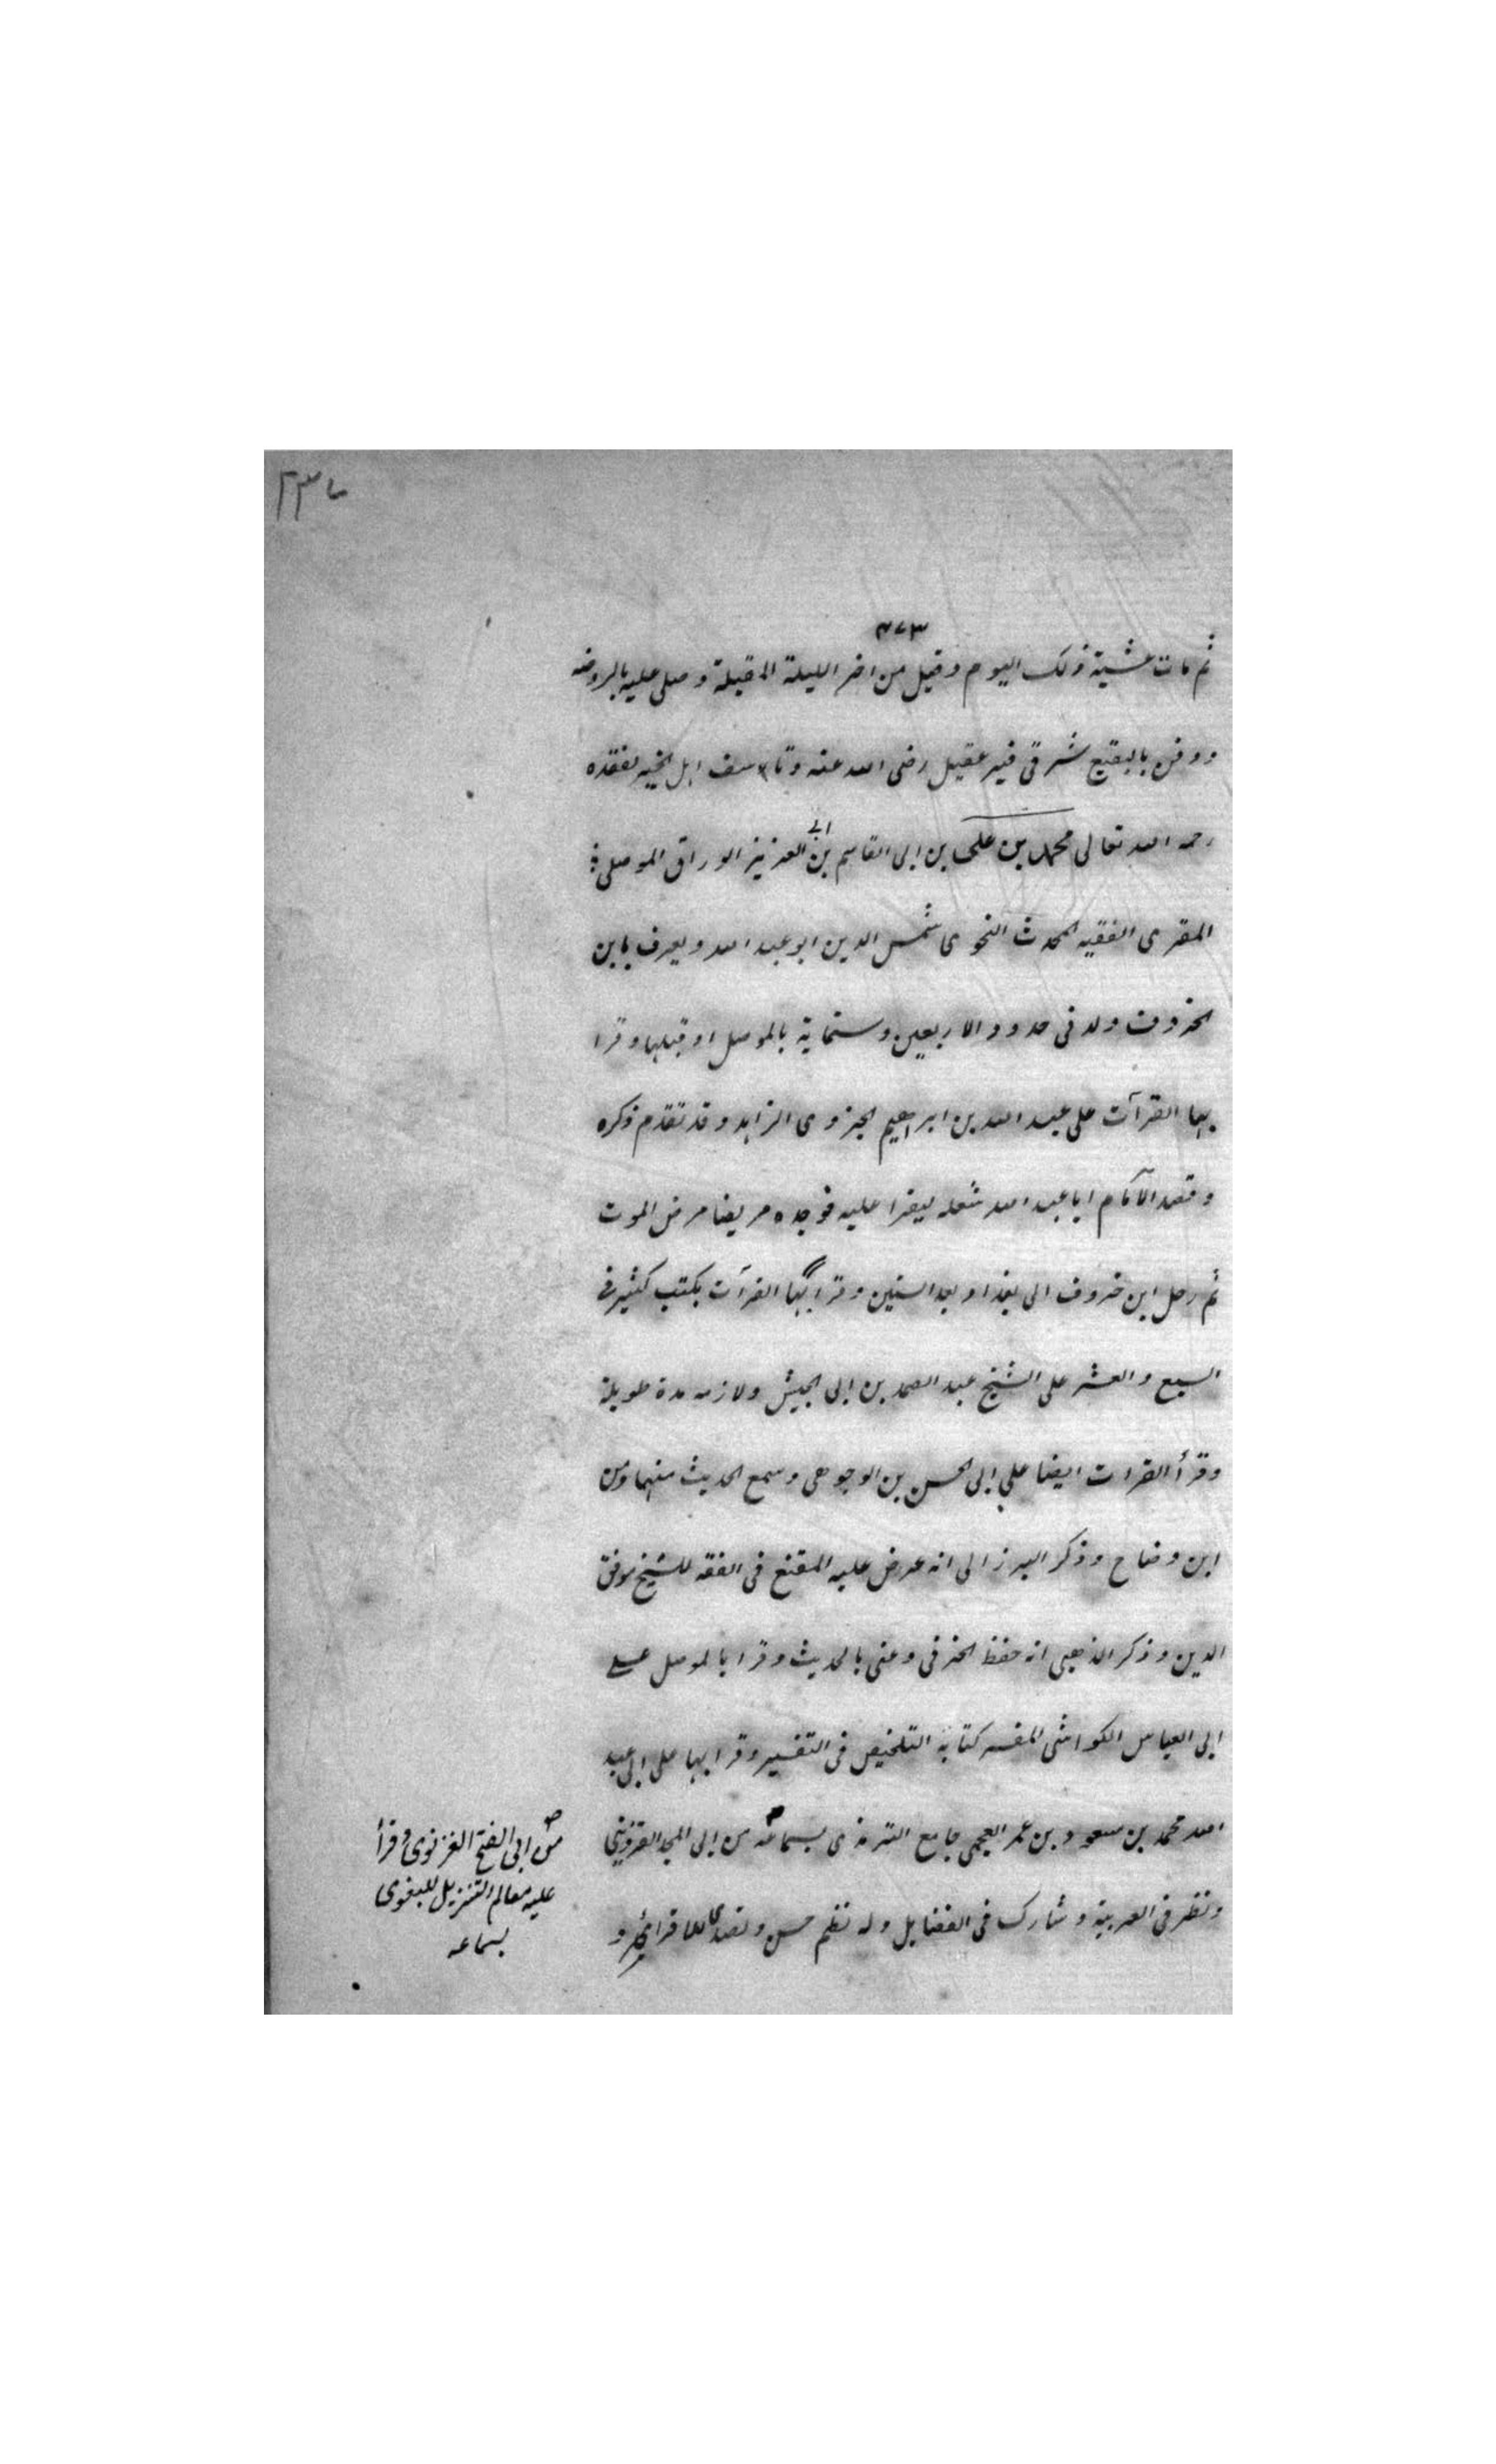 ٤٧٣
ثم مات عشية ذلك اليوم وقيل من اخر الليلة المقبلة وصلى عليه بالروضه
ودفن بالبقيع شرقى قبر عقيل رضى الله عنه وتاسف اهل الخير لفقده
رحمه الله تعالى محمد بن على بن ابى القاسم بن ابى العز يز الوراق الموصلى
المقرى الفقيه المحدث النحوى شمس الدين ابو عبد الله ويعرف بابن
الخروف ولد فى حدود الاربعين وستماية بالموصل او قبلها وقرا
بها القرآت على عبد الله بن ابراهيم الجزرى الزاهد وقد تقدم ذكره
وقصد الامام ابا عبد الله شعله ليقرا عليه فوجده مريضا مرض الموت
ثم رحل ابن خروف الى بغداد بعد الستين وقرا بها القرآت بكتب كثير فى
السبع والعشر على الشيخ عبد الصمد بن ابى الجيش ولازمه مدة طويلة
وقرأ القرات ايضا على ابى الحسن بن الوجوهى وسمع الحديث منهما ومن
ابن وضاح وذكر البرزالى انه عرض عليه المقنع فى الفقه للشيخ موفق
الدين وذكر الذهبى انه حفظ الخرقى وعنى بالحديث وقرا بالموصل على
ابى العباس الكواشى المفسر كتابه التلخيص فى التفسير وقرا بها على ابى عبد
الله محمد بن مسعود بن عمر العجمى جامع الترمذى بسماعه من ابى المجد القزوينى
ونظر فى العربية وشارك فى الفضايل وله نظم حسن وتصدى للاقراء و
من ابى الفتح الغزنوى وقرأ
عليه معالم التنزيل للبغوى
بسماعه